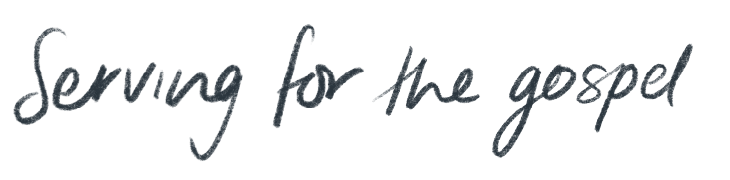 Serving for the gospel